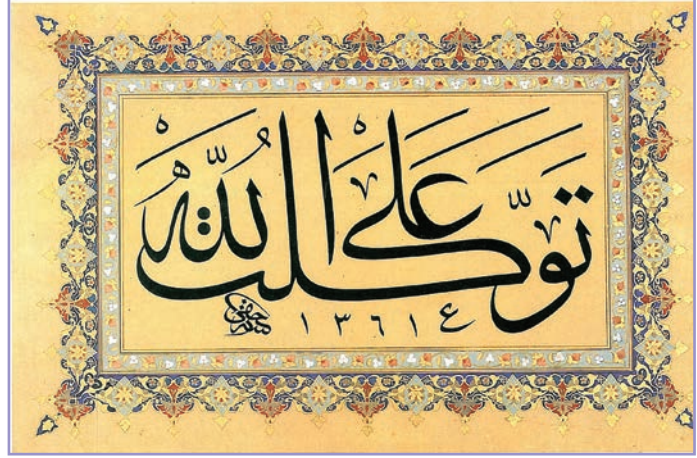 تَوَكَّلْتُ عَلَى اللّٰه
ع ١٣٦١